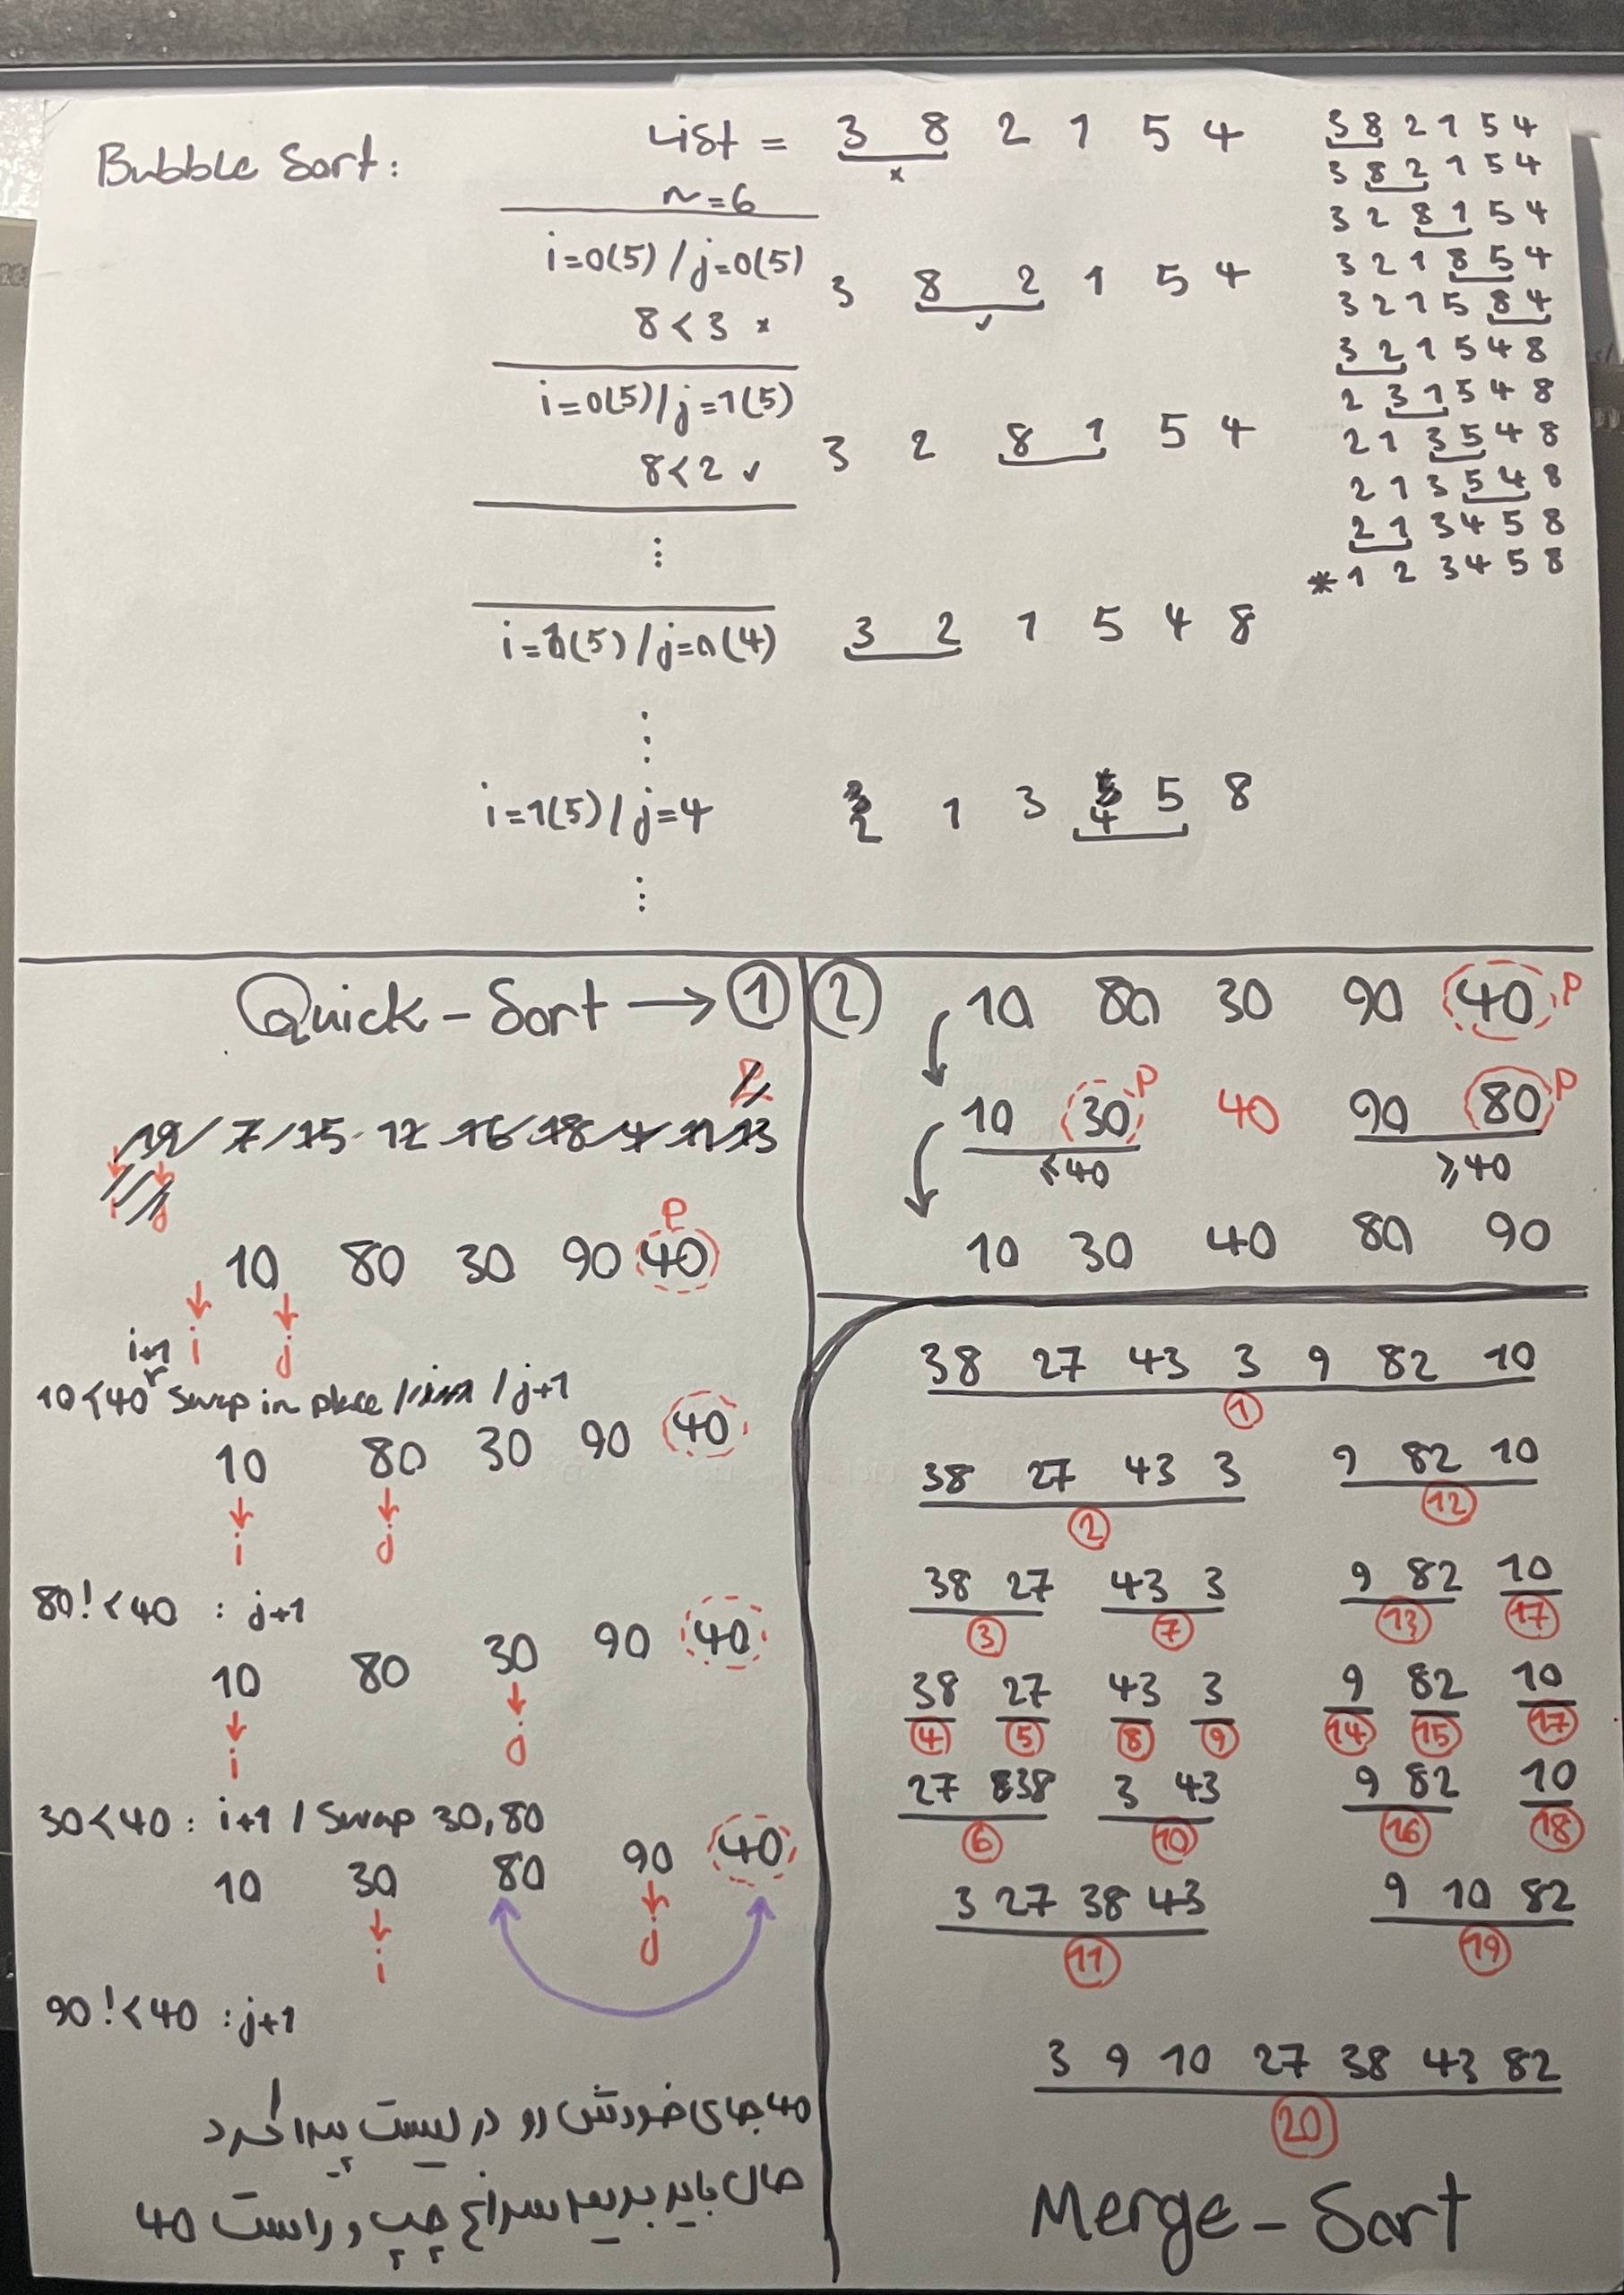 Bubble Sort:
List = 3 8 2 1 5 4
x
n=6
i=0(5) / j=0(5)
8<3 x
3 8 2 1 5 4
✓
i=0(5) / j=1(5)
8<2 ✓
3 2 8 1 5 4
⋮
i=1(5) / j=0(4)
3 2 1 5 4 8
⋮
i=1(5) / j=4
2 1 3 4 5 8
⋮
3 8 2 1 5 4
3 8 2 1 5 4
3 2 8 1 5 4
3 2 1 8 5 4
3 2 1 5 8 4
3 2 1 5 4 8
2 3 1 5 4 8
2 1 3 5 4 8
2 1 3 5 4 8
2 1 3 4 5 8
* 1 2 3 4 5 8
Quick-Sort → ①
P
19 7 15 12 16 18 4 11 13
i j
P
10 80 30 90 40
i j
i+1
10<40 Swap in place / j+1
10 80 30 90 40
i j
80!<40 : j+1
10 80 30 90 40
i j
30<40 : i+1 / Swap 30,80
10 30 80 90 40
i j
90!<40 : j+1
40 جای خودش رو در لیست پیدا کرد
حال باید بریم سراغ چپ و راست 40
②
10 80 30 90 40 P
10 30 P 40 90 80 P
≤40 ≥40
10 30 40 80 90
38 27 43 3 9 82 10
①
38 27 43 3 9 82 10
② ⑫
38 27 43 3 9 82 10
③ ⑦ ⑬ ⑰
38 27 43 3 9 82 10
④ ⑤ ⑧ ⑨ ⑭ ⑮ ⑰
27 38 3 43 9 82 10
⑥ ⑩ ⑯ ⑱
3 27 38 43 9 10 82
⑪ ⑲
3 9 10 27 38 43 82
⑳
Merge-Sort